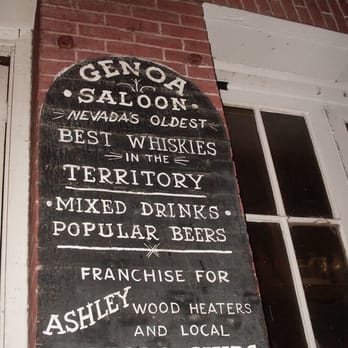 GENOA
• SALOON •
NEVADA'S OLDEST
BEST WHISKIES
IN THE
TERRITORY
• MIXED DRINKS •
POPULAR BEERS
FRANCHISE FOR
ASHLEY WOOD HEATERS
AND LOCAL